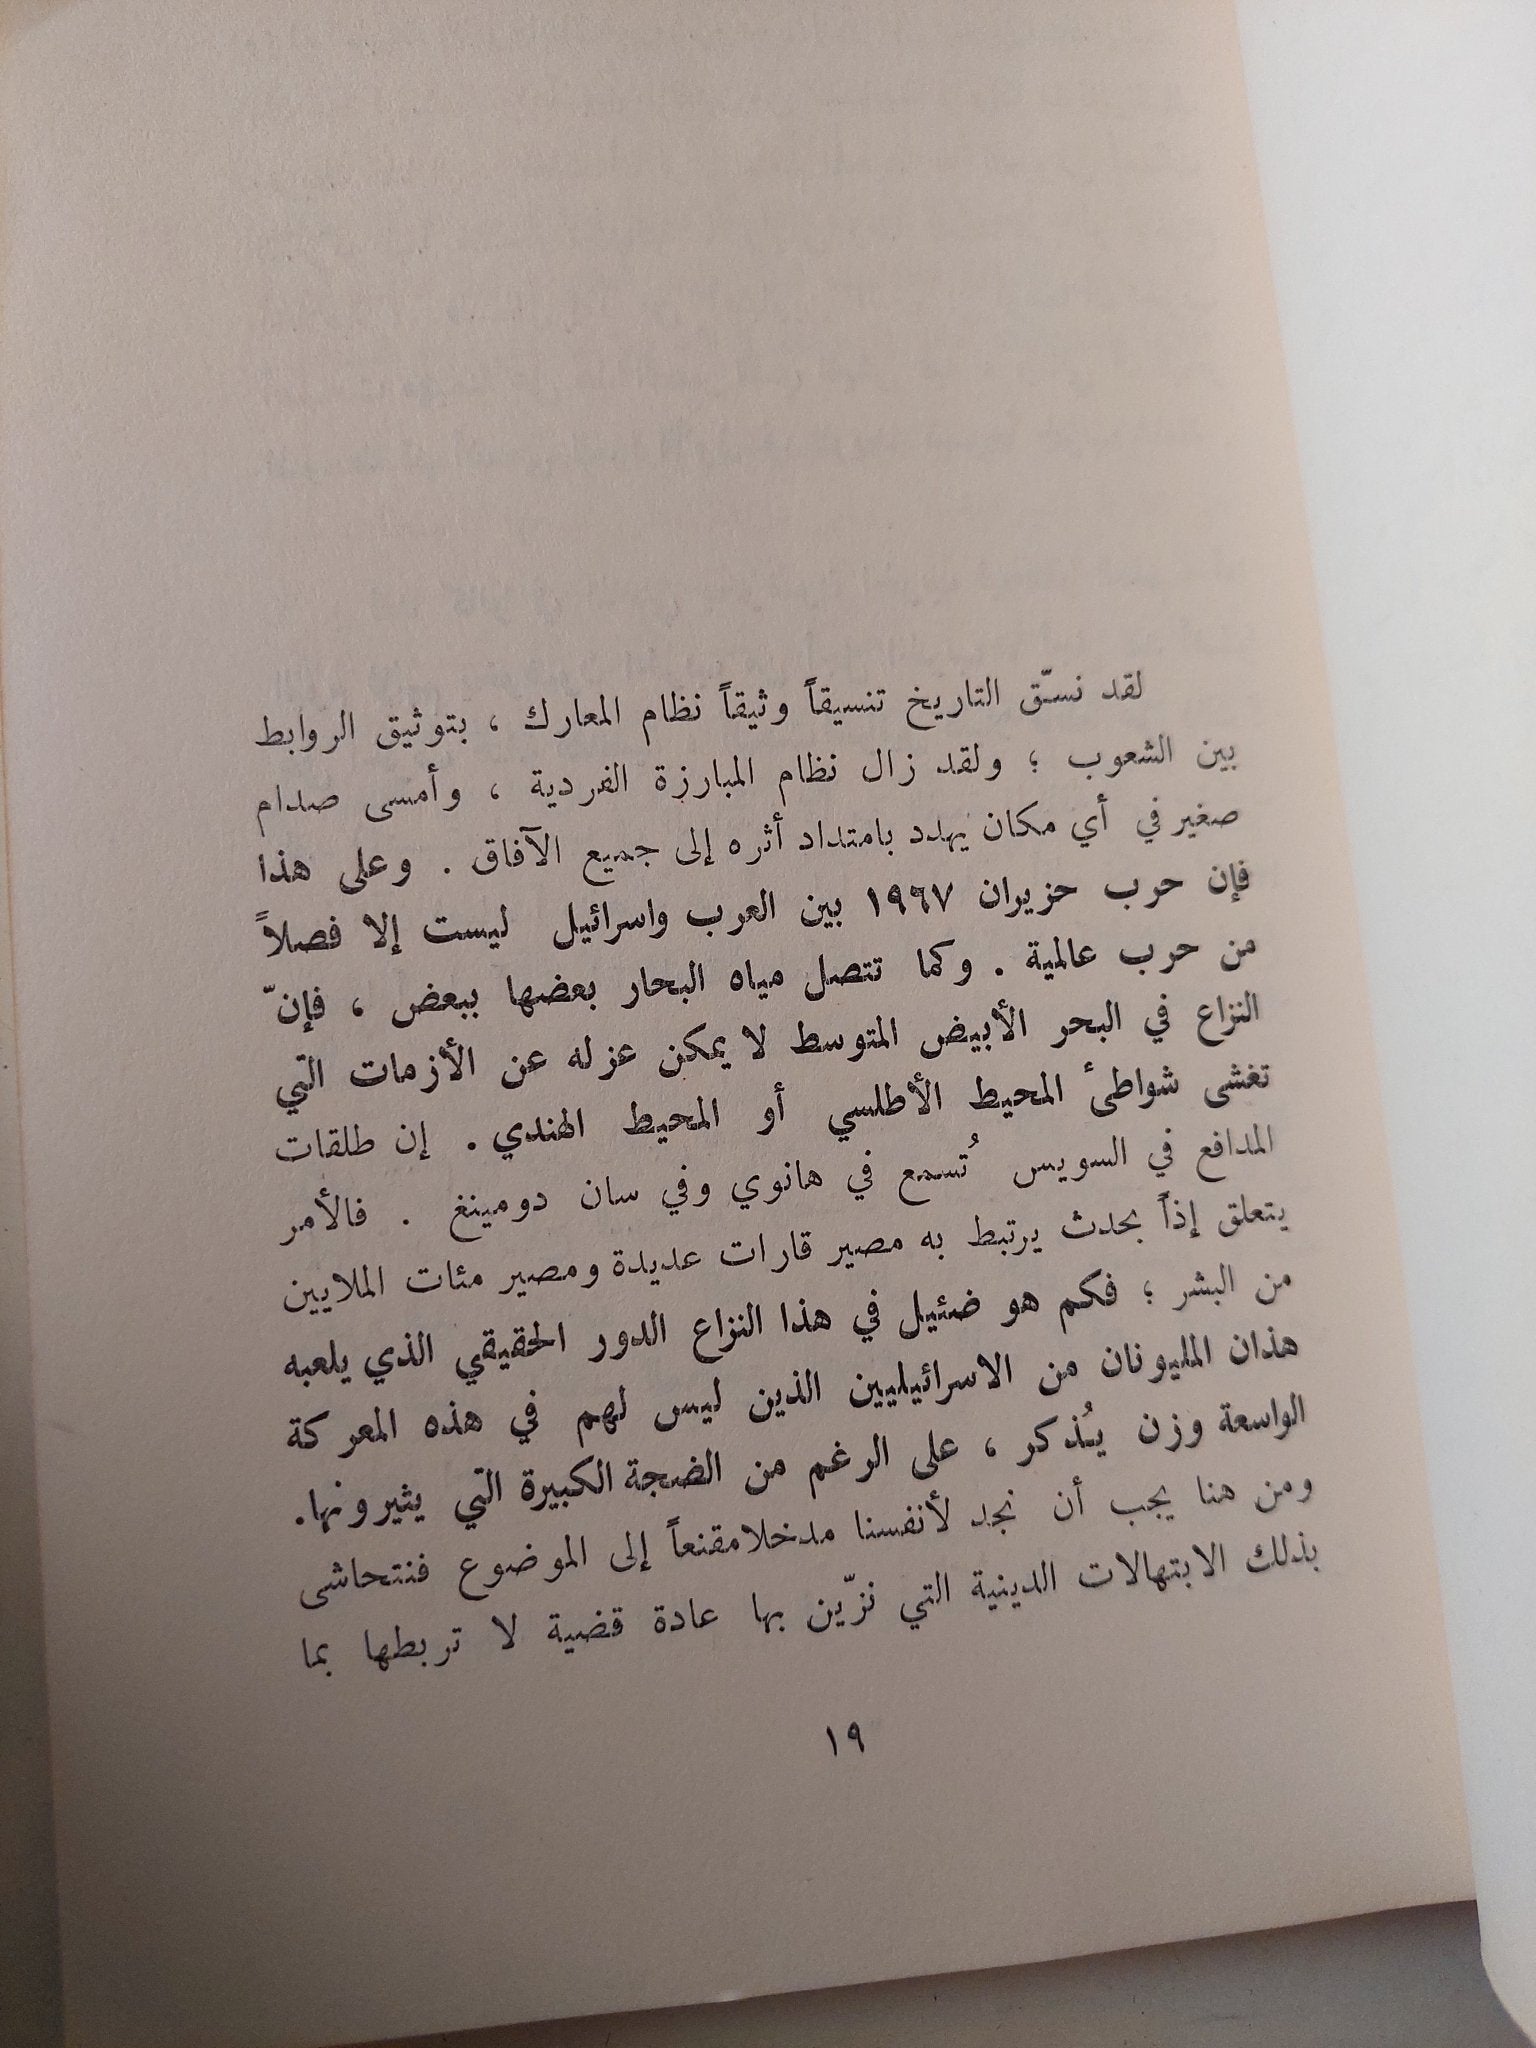 لقد نسّق التاريخ تنسيقاً وثيقاً نظام المعارك ، بتوثيق الروابط
بين الشعوب ؛ ولقد زال نظام المبارزة الفردية ، وأمسى صدام
صغير في أي مكان يهدد بامتداد أثره إلى جميع الآفاق . وعلى هذا
فإن حرب حزيران ١٩٦٧ بين العرب واسرائيل ليست إلا فصلاً
من حرب عالمية . وكما تتصل مياه البحار بعضها ببعض ، فإنّ
النزاع في البحر الأبيض المتوسط لا يمكن عزله عن الأزمات التي
تغشى شواطىٔ المحيط الأطلسي أو المحيط الهندي . إن طلقات
المدافع في السويس تُسمع في هانوي وفي سان دومينغ . فالأمر
يتعلق إذاً بحدث يرتبط به مصير قارات عديدة ومصير مئات الملايين
من البشر ؛ فكم هو ضئيل في هذا النزاع الدور الحقيقي الذي يلعبه
هذان المليونان من الاسرائيليين الذين ليس لهم في هذه المعركة
الواسعة وزن يُذكر ، على الرغم من الضجة الكبيرة التي يثيرونها.
ومن هنا يجب أن نجد لأنفسنا مدخلا مقنعاً إلى الموضوع فنتحاشى
بذلك الابتهالات الدينية التي نزّين بها عادة قضية لا تربطها بما
١٩